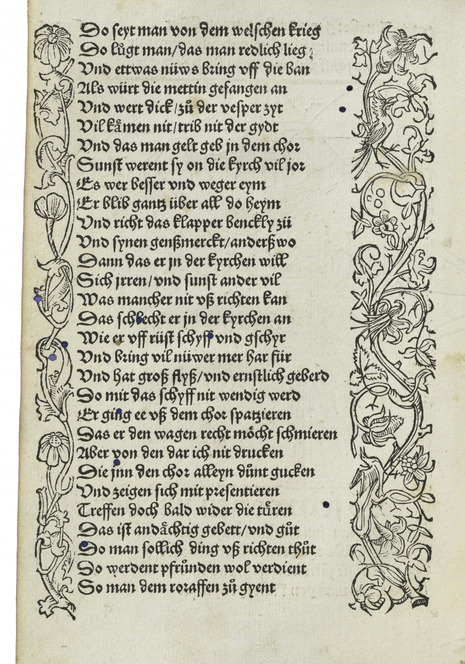 Do seyt man von dem welschen krieg
Do lůgt man/das man redlich lieg
Vnd ettwas nüws bring vff die ban
Als würt die mettin gefangen an
Vnd wert dick/zů der vesper zyt
Vil kåmen nit/trib nit der gydt
Vnd das man gelt geb jn dem chor
Sunst werent sy on die kyrch vil jor
Es wer besser vnd weger eym
Er blib gantz über all do heym
Vnd richt das klapper benckly zů
Vnd synen genßmerckt/anderßwo
Dann das er jn der kyrchen will
Sich jrren/vnd sunst ander vil
Was mancher nit vß richten kan
Das schlecht er jn der kyrchen an
Wie er vff rüst schyff vnd gschyr
Vnd bring vil nüwer mer har für
Vnd har groß flyß/vnd ernstlich geberd
Do mit das schyff nit wendig werd
Er ging ee vß dem chor spatzieren
Das er den wagen recht möcht schmieren
Aber von den dar ich nit drucken
Die jnn den chor alleyn důnt gucken
Vnd zeigen sich mit presentieren
Treffen doch bald wider die tůren
Das ist andåchtig gebett/vnd gůt
So man sollich ding vß richten thůt
Do werdent pfrůnden wol verdient
So man dem roraffen zů gyent